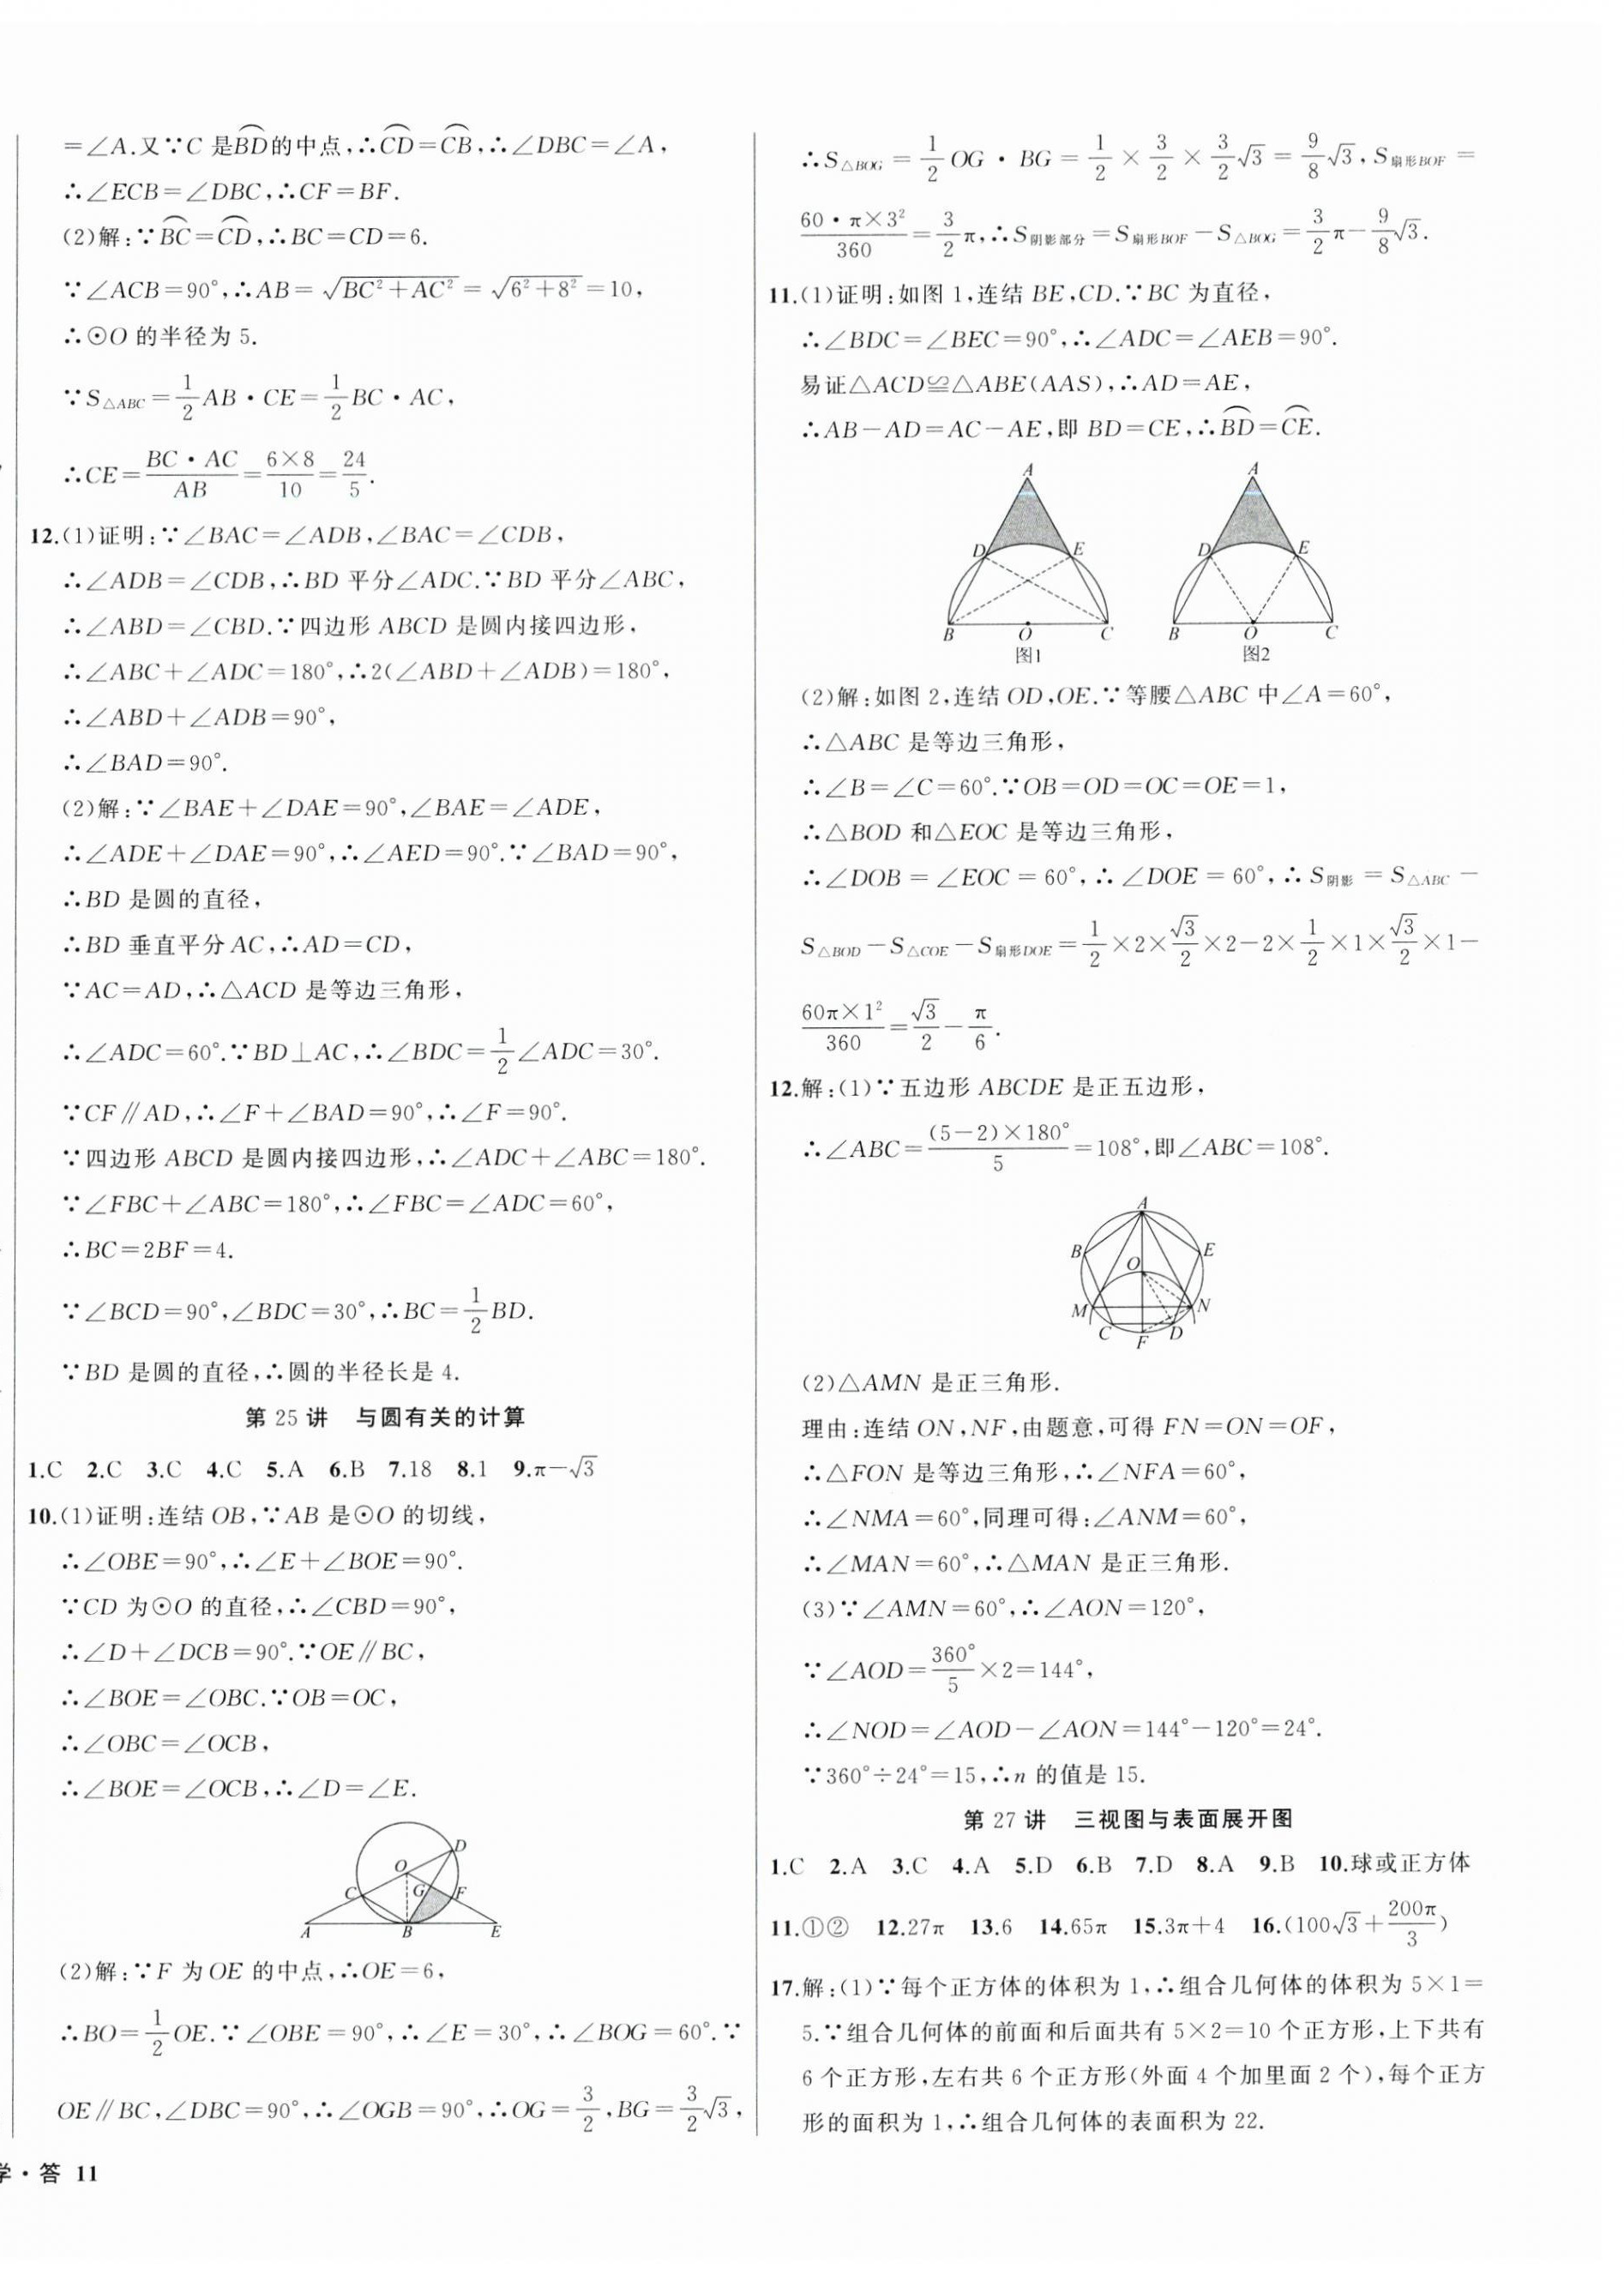 =∠A.又∵C 是BD的中点,∴CD=CB,∴∠DBC=∠A,
∴∠ECB=∠DBC,∴CF=BF.
(2)解:∵BC=CD,∴BC=CD=6.
∵∠ACB=90°,∴AB=√(BC²+AC²)=√(6²+8²)=10,
∴⊙O 的半径为 5.
∵S△ABC=1/2 AB·CE=1/2 BC·AC,
∴CE=BC·AC/AB=6×8/10=24/5.
12.(1)证明:∵∠BAC=∠ADB,∠BAC=∠CDB,
∴∠ADB=∠CDB,∴BD 平分∠ADC.∵BD 平分∠ABC,
∴∠ABD=∠CBD.∵四边形 ABCD 是圆内接四边形,
∴∠ABC+∠ADC=180°,∴2(∠ABD+∠ADB)=180°,
∴∠ABD+∠ADB=90°,
∴∠BAD=90°.
(2)解:∵∠BAE+∠DAE=90°,∠BAE=∠ADE,
∴∠ADE+∠DAE=90°,∴∠AED=90°.∵∠BAD=90°,
∴BD 是圆的直径,
∴BD 垂直平分 AC,∴AD=CD,
∵AC=AD,∴△ACD 是等边三角形,
∴∠ADC=60°.∵BD⊥AC,∴∠BDC=1/2∠ADC=30°.
∵CF∥AD,∴∠F+∠BAD=90°,∴∠F=90°.
∵四边形 ABCD 是圆内接四边形,∴∠ADC+∠ABC=180°.
∵∠FBC+∠ABC=180°,∴∠FBC=∠ADC=60°,
∴BC=2BF=4.
∵∠BCD=90°,∠BDC=30°,∴BC=1/2 BD.
∵BD 是圆的直径,∴圆的半径长是 4.
第 25 讲 与圆有关的计算
1.C 2.C 3.C 4.C 5.A 6.B 7.18 8.1 9.π-√3
10.(1)证明:连结 OB,∵AB 是⊙O 的切线,
∴∠OBE=90°,∴∠E+∠BOE=90°.
∵CD 为⊙O 的直径,∴∠CBD=90°,
∴∠D+∠DCB=90°.∵OE∥BC,
∴∠BOE=∠OBC.∵OB=OC,
∴∠OBC=∠OCB,
∴∠BOE=∠OCB,∴∠D=∠E.
D
O
C G F
A B E
(2)解:∵F 为 OE 的中点,∴OE=6,
∴BO=1/2 OE.∵∠OBE=90°,∴∠E=30°,∴∠BOG=60°.∵
OE∥BC,∠DBC=90°,∴∠OGB=90°,∴OG=3/2,BG=3/2√3,
学·答 11
∴S△BOG=1/2 OG·BG=1/2×3/2×3/2√3=9/8√3,S扇形BOF=
60·π×3²/360=3/2π,∴S阴影部分=S扇形BOF-S△BOG=3/2π-9/8√3.
11.(1)证明:如图 1,连结 BE,CD.∵BC 为直径,
∴∠BDC=∠BEC=90°,∴∠ADC=∠AEB=90°.
易证△ACD≌△ABE(AAS),∴AD=AE,
∴AB-AD=AC-AE,即 BD=CE,∴BD=CE.
A A
D E D E
B O C B O C
图1 图2
(2)解:如图 2,连结 OD,OE.∵等腰△ABC 中∠A=60°,
∴△ABC 是等边三角形,
∴∠B=∠C=60°.∵OB=OD=OC=OE=1,
∴△BOD 和△EOC 是等边三角形,
∴∠DOB=∠EOC=60°,∴∠DOE=60°,∴S阴影=S△ABC-
S△BOD-S△COE-S扇形DOE=1/2×2×√3/2×2-2×1/2×1×√3/2×1-
60π×1²/360=√3/2-π/6.
12.解:(1)∵五边形 ABCDE 是正五边形,
∴∠ABC=(5-2)×180°/5=108°,即∠ABC=108°.
A
B E
O
M N
C F D
(2)△AMN 是正三角形.
理由:连结 ON,NF,由题意,可得 FN=ON=OF,
∴△FON 是等边三角形,∴∠NFA=60°,
∴∠NMA=60°,同理可得:∠ANM=60°,
∴∠MAN=60°,∴△MAN 是正三角形.
(3)∵∠AMN=60°,∴∠AON=120°,
∵∠AOD=360°/5×2=144°,
∴∠NOD=∠AOD-∠AON=144°-120°=24°.
∵360°÷24°=15,∴n 的值是 15.
第 27 讲 三视图与表面展开图
1.C 2.A 3.C 4.A 5.D 6.B 7.D 8.A 9.B 10.球或正方体
11.①② 12.27π 13.6 14.65π 15.3π+4 16.(100√3+200π/3)
17.解:(1)∵每个正方体的体积为 1,∴组合几何体的体积为 5×1=
5.∵组合几何体的前面和后面共有 5×2=10 个正方形,上下共有
6 个正方形,左右共 6 个正方形(外面 4 个加里面 2 个),每个正方
形的面积为 1,∴组合几何体的表面积为 22.